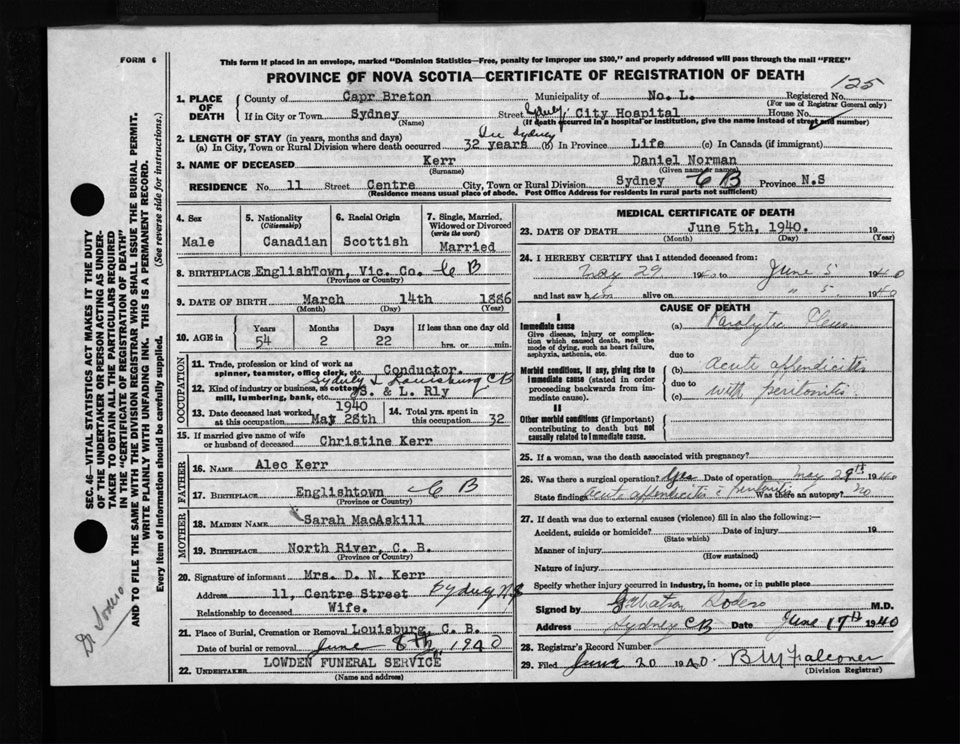 FORM 6
This form if placed in an envelope, marked "Dominion Statistics—Free, penalty for improper use $300," and properly addressed will pass through the mail "FREE"
PROVINCE OF NOVA SCOTIA—CERTIFICATE OF REGISTRATION OF DEATH
125
1. PLACE OF DEATH
County of Capr Breton Municipality of No. L. Registered No.
(For use of Registrar General only)
If in City or Town Sydney Street Sydney City Hospital House No.
(Name) (If death occurred in a hospital or institution, give the name instead of street and number)
2. LENGTH OF STAY (in years, months and days)
(a) In City, Town or Rural Division where death occurred 32 years In Sydney (b) In Province Life (c) In Canada (if immigrant)
3. NAME OF DECEASED Kerr Daniel Norman
(Surname) (Given name or names)
RESIDENCE No. 11 Street Centre City, Town or Rural Division Sydney C B Province N.S
(Residence means usual place of abode. Post Office Address for residents in rural parts not sufficient)
4. Sex Male
5. Nationality (Citizenship) Canadian
6. Racial Origin Scottish
7. Single, Married, Widowed or Divorced (write the word) Married
8. BIRTHPLACE EnglishTown, Vic. Co. C B
(Province or Country)
9. DATE OF BIRTH March 14th 1886
(Month) (Day) (Year)
10. AGE in Years Months Days If less than one day old
54 2 22 hrs. or min.
OCCUPATION
11. Trade, profession or kind of work as spinner, teamster, office clerk, etc. Conductor.
Sydney & Louisburg CB
12. Kind of industry or business, as cotton mill, lumbering, bank, etc. S. & L. Rly
13. Date deceased last worked at this occupation 1940 May 28th
14. Total yrs. spent in this occupation 32
15. If married give name of wife or husband of deceased Christine Kerr
FATHER
16. NAME Alec Kerr
17. BIRTHPLACE Englishtown C B
(Province or Country)
MOTHER
18. MAIDEN NAME Sarah MacAskill
19. BIRTHPLACE North River, C. B.
(Province or Country)
20. Signature of informant Mrs. D. N. Kerr
Address 11, Centre Street Sydney N S
Relationship to deceased Wife.
21. Place of Burial, Cremation or Removal Louisburg, C. B.
Date of burial or removal June 8th, 1940
22. UNDERTAKER LOWDEN FUNERAL SERVICE
(Name and address)
MEDICAL CERTIFICATE OF DEATH
23. DATE OF DEATH June 5th, 1940. 19
(Month) (Day) (Year)
24. I HEREBY CERTIFY that I attended deceased from:
May 29 1940 to June 5 1940
and last saw him alive on " 5 1940
CAUSE OF DEATH
I
Immediate cause
Give disease, injury or complication which caused death, not the mode of dying, such as heart failure, asphyxia, asthenia, etc.
(a) Paralytic Ileus
due to
Morbid conditions, if any, giving rise to immediate cause (stated in order proceeding backwards from immediate cause).
(b) acute appendicitis
due to
(c) with peritonitis.
II
Other morbid conditions (if important) contributing to death but not causally related to immediate cause.
25. If a woman, was the death associated with pregnancy?
26. Was there a surgical operation? Yes Date of operation May 29th 1940
State findings acute appendicitis c peritonitis Was there an autopsy? no
27. If death was due to external causes (violence) fill in also the following:—
Accident, suicide or homicide? Date of injury 19
(State which)
Manner of injury
(How sustained)
Nature of injury
Specify whether injury occurred in industry, in home, or in public place
Signed by Sodero M.D.
Address Sydney CB Date June 17th 1940
28. Registrar's Record Number
29. Filed June 20 1940. B M Falconer
(Division Registrar)
SEC. 46—VITAL STATISTICS ACT MAKES IT THE DUTY
OF THE UNDERTAKER OR PERSON ACTING AS UNDER-
TAKER TO OBTAIN ALL THE PARTICULARS REQUIRED
IN THE "CERTIFICATE OF REGISTRATION OF DEATH"
AND TO FILE THE SAME WITH THE DIVISION REGISTRAR WHO SHALL ISSUE THE BURIAL PERMIT.
WRITE PLAINLY WITH UNFADING INK. THIS IS A PERMANENT RECORD.
Every item of Information should be carefully supplied. (See reverse side for instructions.)
Dr Sodero